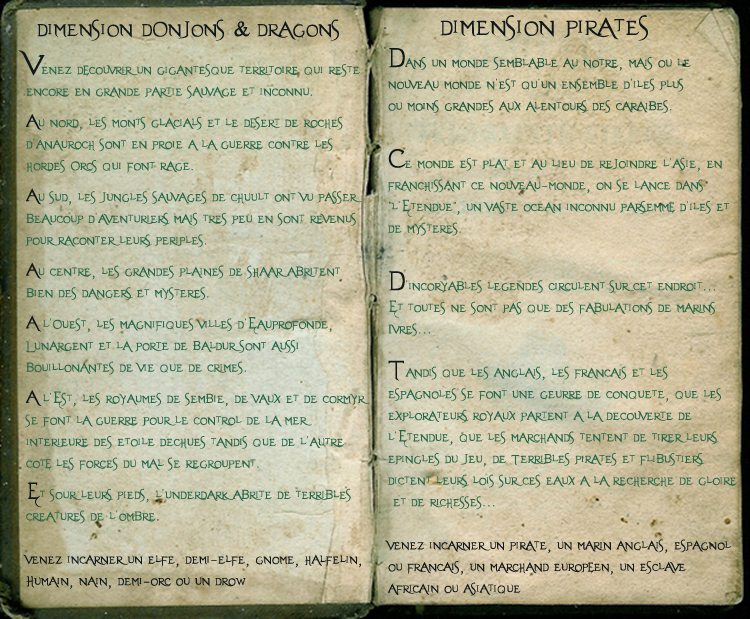 DIMENSION DONJONS & DRAGONS
VENEZ DECOUVRIR UN GIGANTESQUE TERRITOIRE, QUI RESTE
ENCORE EN GRANDE PARTIE SAUVAGE ET INCONNU.
AU NORD, LES MONTS GLACIALS ET LE DESERT DE ROCHES
D'ANAUROCH SONT EN PROIE A LA GUERRE CONTRE LES
HORDES ORCS QUI FONT RAGE.
AU SUD, LES JUNGLES SAUVAGES DE CHUULT ONT VU PASSER
BEAUCOUP D'AVENTURIERS MAIS TRES PEU EN SONT REVENUS
POUR RACONTER LEURS PERIPLES.
AU CENTRE, LES GRANDES PLAINES DE SHAAR ABRITENT
BIEN DES DANGERS ET MYSTERES.
A L'OUEST, LES MAGNIFIQUES VILLES D'EAUPROFONDE,
LUNARGENT ET LA PORTE DE BALDUR SONT AUSSI
BOUILLONANTES DE VIE QUE DE CRIMES.
A L'EST, LES ROYAUMES DE SEMBIE, DE VAUX ET DE CORMYR
SE FONT LA GUERRE POUR LE CONTROL DE LA MER
INTERIEURE DES ETOILE DECHUES TANDIS QUE DE L'AUTRE
COTE LES FORCES DU MAL SE REGROUPENT.
ET SOUR LEURS PIEDS, L'UNDERDARK ABRITE DE TERRIBLES
CREATURES DE L'OMBRE.
VENEZ INCARNER UN ELFE, DEMI-ELFE, GNOME, HALFELIN,
HUMAIN, NAIN, DEMI-ORC OU UN DROW
DIMENSION PIRATES
DANS UN MONDE SEMBLABLE AU NOTRE, MAIS OU LE
NOUVEAU MONDE N'EST QU'UN ENSEMBLE D'ILES PLUS
OU MOINS GRANDES AUX ALENTOURS DES CARAIBES.
CE MONDE EST PLAT ET AU LIEU DE REJOINDRE L'ASIE, EN
FRANCHISSANT CE NOUVEAU-MONDE, ON SE LANCE DANS
"L'ETENDUE", UN VASTE OCEAN INCONNU PARSEMME D'ILES ET
DE MYSTERES.
D'INCORYABLES LEGENDES CIRCULENT SUR CET ENDROIT...
ET TOUTES NE SONT PAS QUE DES FABULATIONS DE MARINS
IVRES...
TANDIS QUE LES ANGLAIS, LES FRANCAIS ET LES
ESPAGNOLES SE FONT UNE GEURRE DE CONQUETE, QUE LES
EXPLORATEURS ROYAUX PARTENT A LA DECOUVERTE DE
L'ETENDUE, QUE LES MARCHANDS TENTENT DE TIRER LEURS
EPINGLES DU JEU, DE TERRIBLES PIRATES ET FLIBUSTIERS
DICTENT LEURS LOIS SUR CES EAUX A LA RECHERCHE DE GLOIRE
ET DE RICHESSES...
VENEZ INCARNER UN PIRATE, UN MARIN ANGLAIS, ESPAGNOL
OU FRANCAIS, UN MARCHAND EUROPEEN, UN ESCLAVE
AFRICAIN OU ASIATIQUE